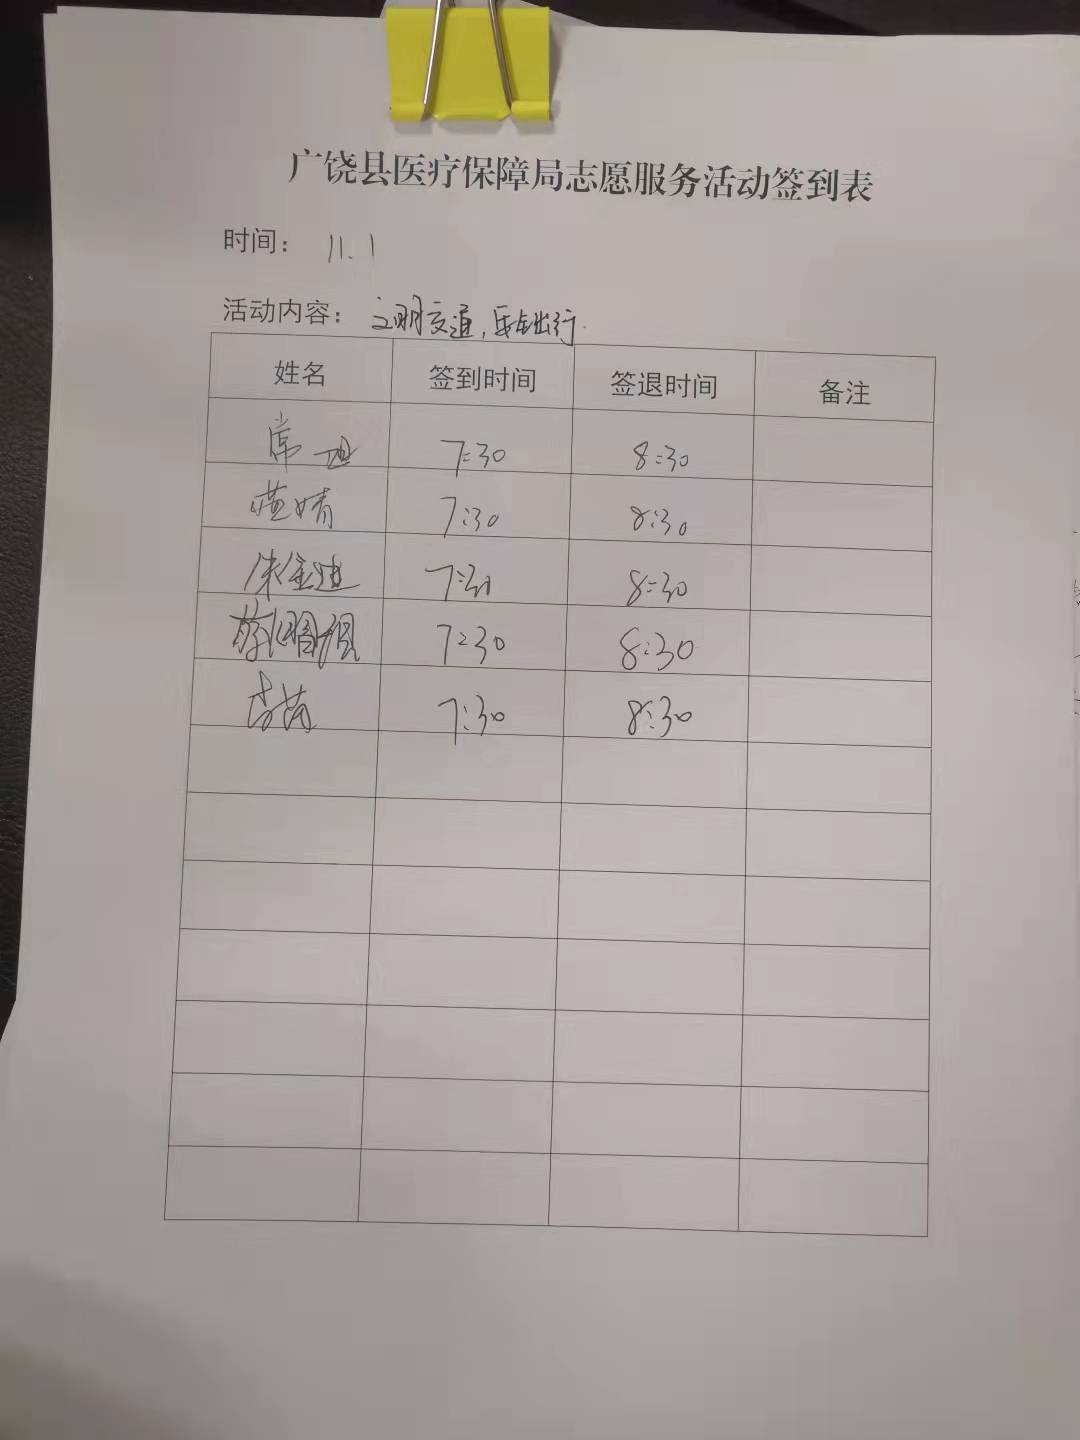 广饶县医疗保障局志愿服务活动签到表
时间： 11.1
活动内容：文明交通,安全出行.
姓名 签到时间 签退时间 备注
常 7:30 8:30
婧 7:30 8:30
朱金迪 7:30 8:30
7:30 8:30
李芮 7:30 8:30